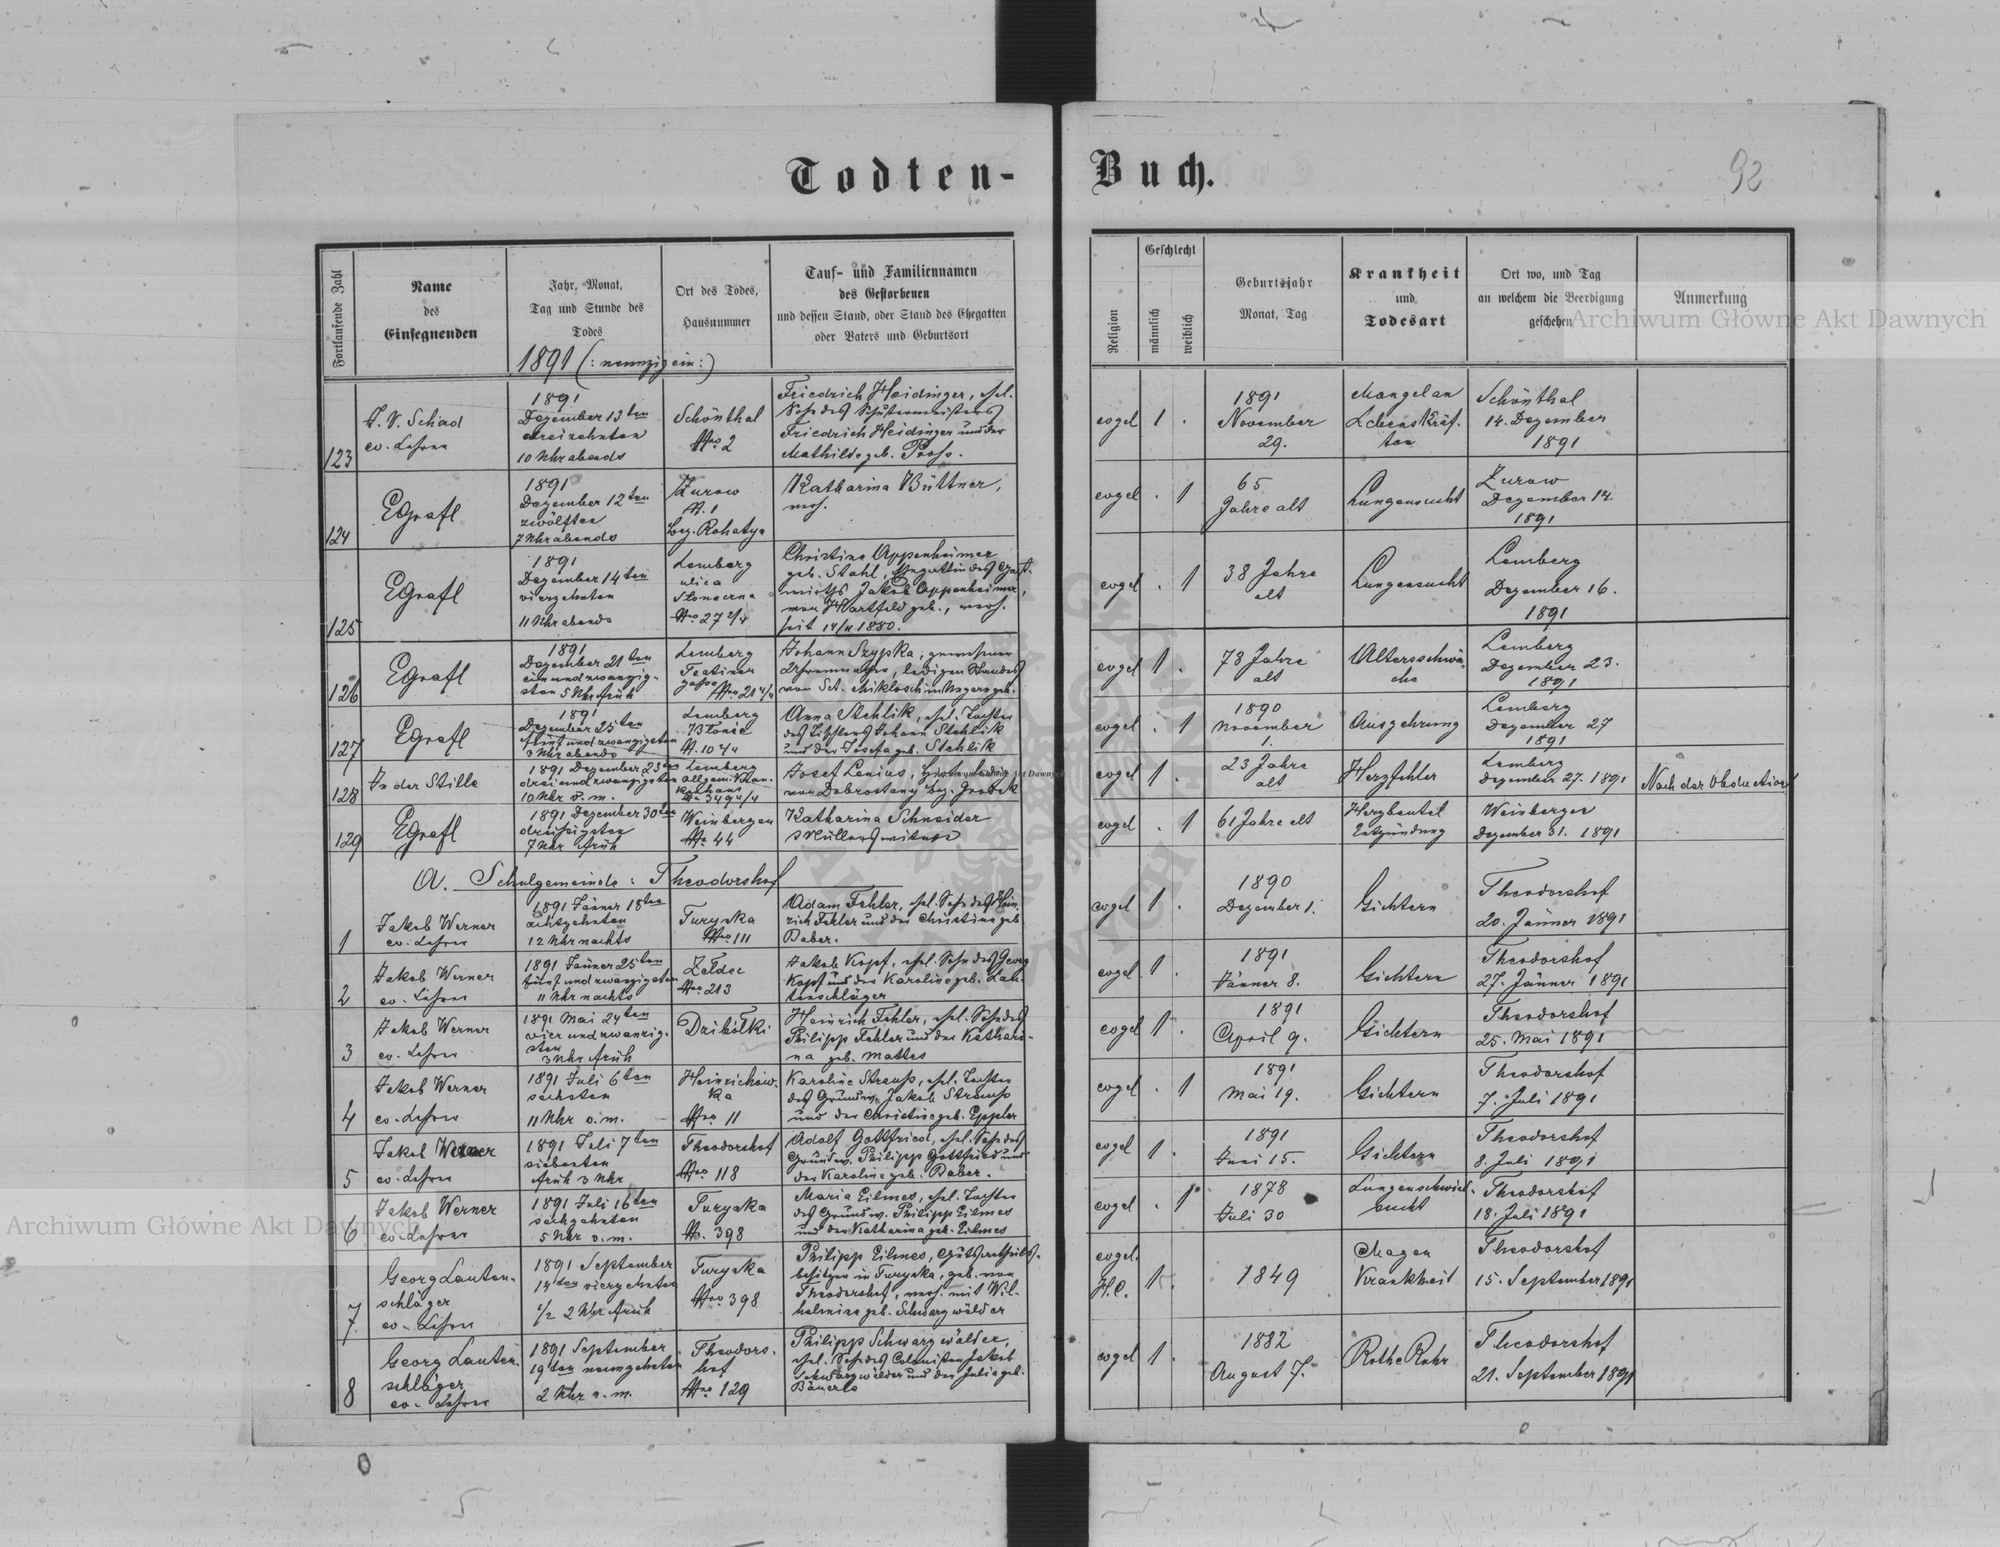 Todten-Buch.
92
Fortlaufende Zahl
Name
des
Einsegnenden
Jahr, Monat,
Tag und Stunde des
Todes
Ort des Todes,
Hausnummer
Tauf- und Familiennamen
des Gestorbenen
und dessen Stand, oder Stand des Ehegatten
oder Vaters und Geburtsort
Religion
Geschlecht
männlich
weiblich
Geburtsjahr
Monat, Tag
Krankheit
und
Todesart
Ort wo, und Tag
an welchem die Beerdigung
geschehen
Anmerkung
Archiwum Główne Akt Dawnych
1891 (: neunzigein :)
123
Schad
ev. Lehrer
1891
Dezember 13ten
dreizehnten
10 Uhr abends
Schönthal
Nro 2
Friedrich Heidinger, ehel.
Sohn des
Friedrich Heidinger und der
Mathilde geb.
evgel
1 .
1891
November
29.
Mangel an
Lebenskräf-
ten
Schönthal
14. Dezember
1891
124
EGrafl
1891
Dezember 12ten
zwölften
7 Uhr abends
Zurow
N. 1
Bez. Rohatyn
Katharina Büttner,
verh.
evgel
. 1
65
Jahre alt
Lungensucht
Zurow
Dezember 14.
1891
125
EGrafl
1891
Dezember 14ten
vierzehnten
11 Uhr abends
Lemberg
ulica
Słoneczna
Nro 27 2/4
Christine Oppenheimer
geb. Stahl, Ehegattin des Gast-
wirths Jakob Oppenheimer,
von Hartfeld geb., verh.
seit 14/11 1880.
evgel
. 1
38 Jahre
alt
Lungensucht
Lemberg
Dezember 16.
1891
126
EGrafl
1891
Dezember 21ten
ein und zwanzig-
sten 5 Uhr früh
Lemberg
Teatiner
gasse
Nro 21 4/4
Johann Szypka, gewesener
Uhrenmacher, ledigen Standes
von Sct. Miklosch in Ungarn geb.
evgel
1 .
78 Jahre
alt
Altersschwä-
che
Lemberg
Dezember 23.
1891
127
EGrafl
1891
Dezember 25ten
fünf und zwanzigsten
3 Uhr abends
Lemberg
Błonie
N. 10 4/4
Anna Stehlik, ehel. Tochter
des Tischlers Johann Stehlik
und der Josefa geb. Stehlik
evgel
. 1
1890
November
1.
Auszehrung
Lemberg
Dezember 27
1891
128
In der Stille
1891 Dezember 23ten
drei und zwanzigsten
10 Uhr v. m.
Lemberg
allgem. Kran-
kenhaus
Josef Lenius,
von Dobrostany bez. Grodek
evgel
1 .
23 Jahre
alt
Herzfehler
Lemberg
Dezember 27. 1891
Nach der Obduction
129
EGrafl
1891 Dezember 30ten
dreissigsten
7 Uhr früh
Weinbergen
No 44
Katharina Schneider
Müllers witwe
evgel
. 1
61 Jahre alt
Herzbeutel
Entzündung
Weinbergen
Dezember 31. 1891
A. Schulgemeinde: Theodorshof
1
Jakob Werner
ev. Lehrer
1891 Jänner 18ten
achtzehnten
12 Uhr nachts
Turynka
Nro 111
Adam Fehler, ehel. Sohn des Hein-
rich Fehler und der Christine geb.
Daber.
evgel
1 .
1890
Dezember 1.
Gichtern
Theodorshof
20. Jänner 1891
2
Jakob Werner
ev. Lehrer
1891 Jänner 25ten
fünf und zwanzigsten
11 Uhr nachts
Żeldec
Nro 213
Jakob Kopf, ehel. Sohn des Georg
Kopf und der Karoline geb. Lau-
tenschläger
evgel
1 .
1891
Jänner 8.
Gichtern
Theodorshof
27. Jänner 1891
3
Jakob Werner
ev. Lehrer
1891 Mai 24ten
vier und zwanzig-
sten
3 Uhr früh
Dzibółki
Heinrich Fehler, ehel. Sohn des
Philipp Fehler und der Kathari-
na geb. Mattes
evgel
1 .
1891
April 9.
Gichtern
Theodorshof
25. Mai 1891
4
Jakob Werner
ev. Lehrer
1891 Juli 6ten
sechsten
11 Uhr v. m.
Heinrichow-
ka
Nro 11
Karoline Strauss, ehel. Tochter
des Grundw. Jakob Strauss
und der Christine geb. Eppler
evgel
. 1
1891
Mai 19.
Gichtern
Theodorshof
7. Juli 1891
5
Jakob Werner
ev. Lehrer
1891 Juli 7ten
siebenten
früh 3 Uhr
Theodorshof
Nro 118
Adolf Gottfried, ehel. Sohn des
Grundw. Philipp Gottfried und
der Karoline geb. Daber.
evgel
1 .
1891
Juni 15.
Gichtern
Theodorshof
8. Juli 1891
6
Jakob Werner
ev. Lehrer
1891 Juli 16ten
sechzehnten
5 Uhr v. m.
Turynka
N. 398
Maria Eilmes, ehel. Tochter
des Grundw. Philipp Eilmes
und der Katharina geb. Eilmes
evgel
. 1
1878
Juli 30
Lungenschwind-
sucht
Theodorshof
18. Juli 1891
7.
Georg Lauten-
schläger
ev. Lehrer
1891 September
14ten vierzehnten
1/2 2 Uhr früh
Turynka
Nro 398
Philipp Eilmes, Gutsantheils-
besitzer in Turynka, geb. von
Theodorshof, verh. mit Wil-
helmine geb. Schwarzwälder
evgel.
H.C.
1 .
1849
Magen
Krankheit
Theodorshof
15. September 1891
8
Georg Lauten-
schläger
ev. Lehrer
1891 September
19ten neunzehnten
2 Uhr n. m.
Theodors-
hof
Nro 129
Philipp Schwarzwälder,
ehel. Sohn des Colonisten Jakob
Schwarzwälder und der Julia geb.
Bäuerle
evgel
1 .
1882
August 7.
Rothe Ruhr
Theodorshof
21. September 1891
Archiwum Główne Akt Dawnych